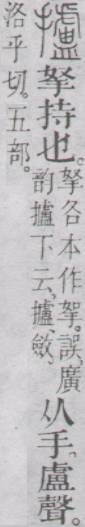 攎拏持也。
拏各本作挐。誤、廣
韵攎下云、攎、斂、
从手、盧聲。
洛乎切。五部。